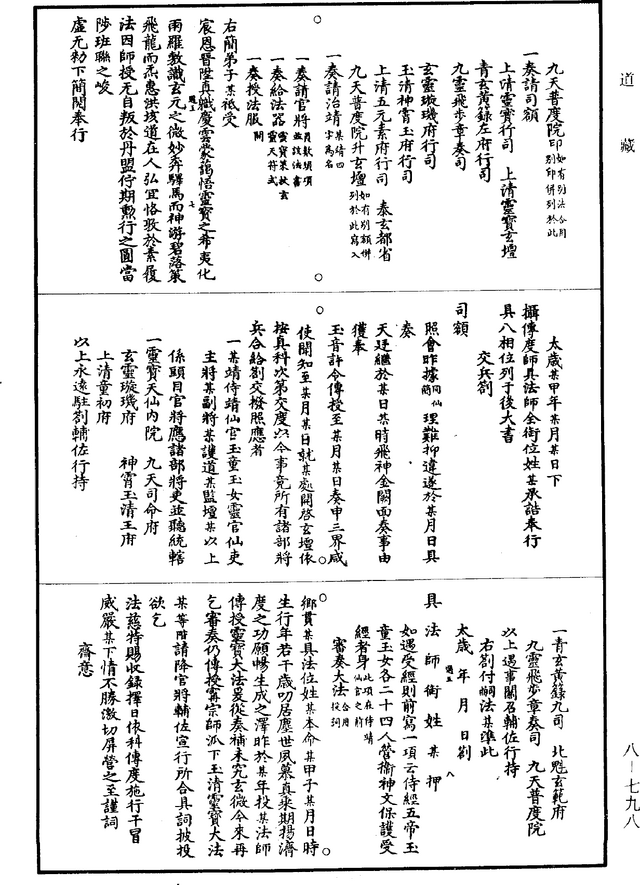 道藏
九天普度院印如有別法合用別印併列於此
一奏請司額
上清靈寶行司　上清靈寶玄壇
青玄黃籙左府行司
九靈飛步章奏司
玄靈璇璣府行司
玉清神霄玉府行司
上清五元素府行司　泰玄都省
九天普度院升玄壇如有別額併列於此寫入
一奏請治靖某靖四字為名
一奏請官將
一奏給法器
一奏授法服
右簡弟子某祗受
宸恩晉陞真職慶雲蒙藹悟靈寶之希夷化
雨羅敷識玄元之微妙奔驛馬而神游碧落策
飛龍而炁惠洪垓道在人弘宜恪敬於素履
法因師授元自叛於丹盟佇期勲行之圓當
陟班聯之峻
虛无勑下簡閱奉行
太歲某甲年某月某日下
攝傳度師具法師全銜位姓某承誥奉行
具八相位列于後大書
交兵劄
司額
照會昨據同仙簡理難抑違遂於某月日具
奏
天廷繼於某日某時飛神金闕面奏事由
獲奉
玉音許令傳授至某月某日奏申三界咸
使聞知至某月某日就某處開啓玄壇依
按真科次第交度以今事竟所有諸部將
兵合給劄交撥照應者
一某靖侍靖仙官玉童玉女靈官仙吏
主將某副將某護道某監壇某以上
係頭目官將應諸部將吏並聽統轄
一靈寶天仙內院　九天司命府
玄靈璇璣府　神霄玉清王府
上清童初府
以上永遠駐劄輔佐行持
一青玄黃籙九司　北魁玄範府
九靈飛步章奏司　九天普度院
以上遇事關召輔佐行持
右劄付嗣法某準此
太歲　年　月　日劄
具法師銜姓某押
如遇受經則前寫一項云侍經五帝玉
童玉女各二十四人管衞神文保護受
經者身此項在侍靖仙官之前
審奏大法合用投詞
鄉貫某具法位姓某本命某甲子某月日時
生行年若干歲叨居塵世夙慕真乘期揚濟
度之功願暢生成之澤昨於某年投某法師
傳授靈寶大法爰從奏補未究玄微今來再
乞審奏仍傳授甯宗師派下玉清靈寶大法
某等階請降官將輔佐宣行所合具詞披投
欲乞
法慈特賜收錄擇日依科傳度施行干冒
威嚴某下情不勝激切屏營之至謹詞
齋意
八－七九八